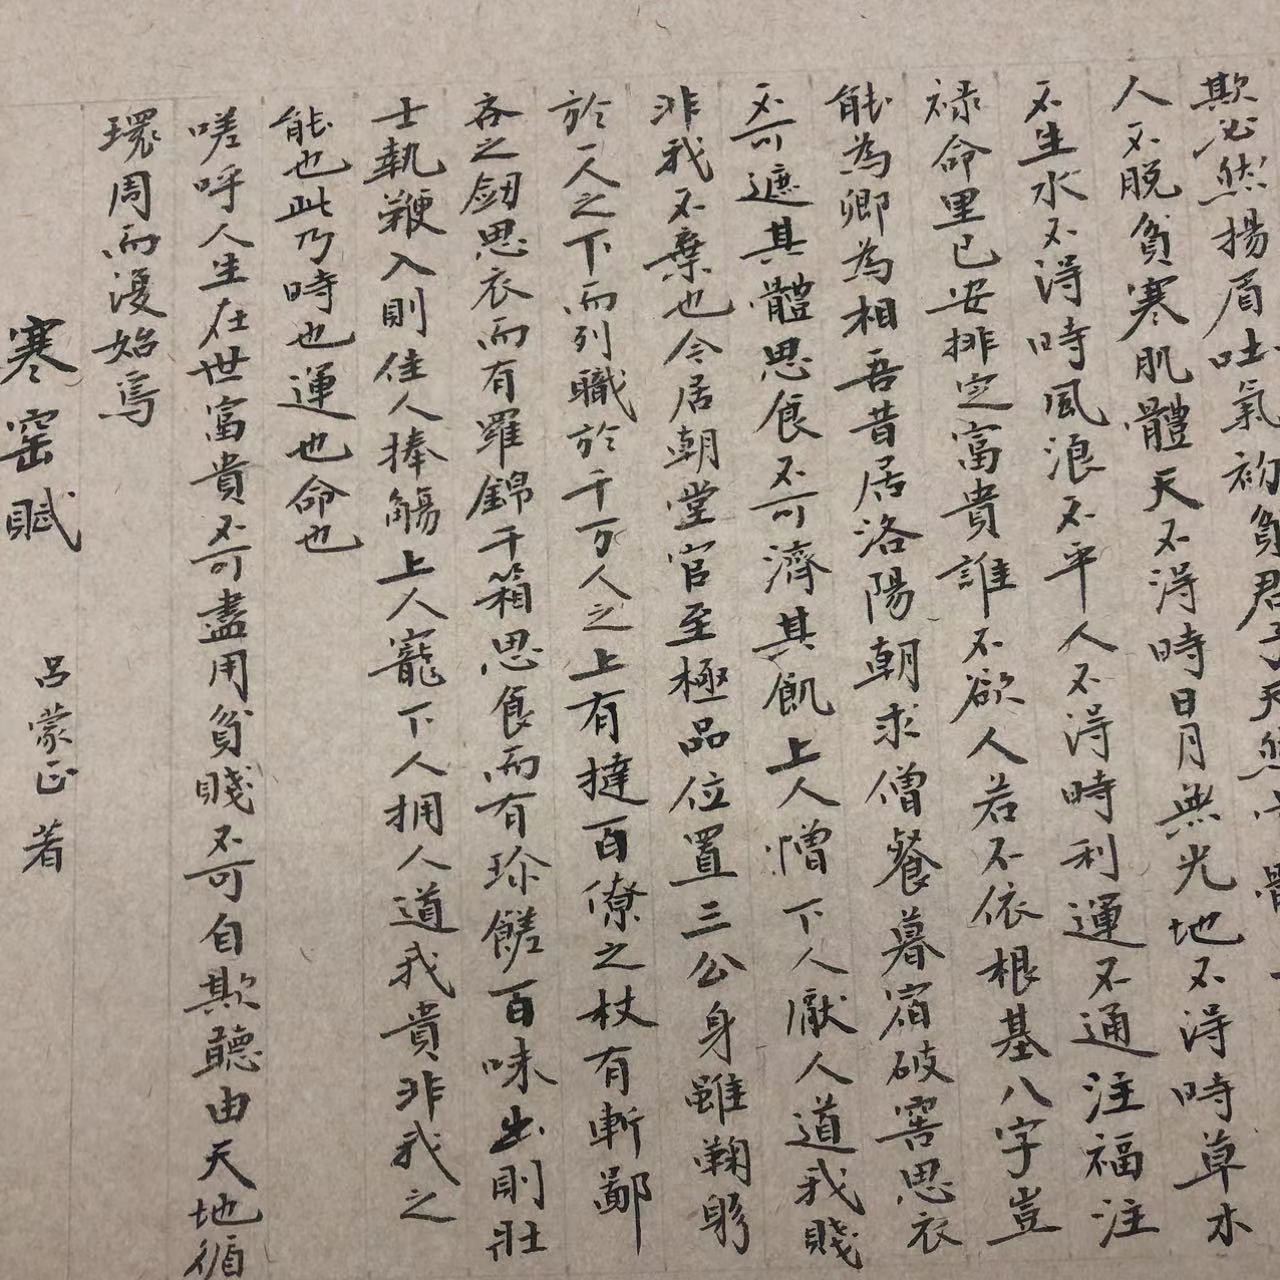 欺必然揚眉吐氣初貧君子天然
人不脱貧寒肌體天不得時日月無光地不得時草木
不生水不得時風浪不平人不得時利運不通注福注
禄命里已安排定富貴誰不欲人若不依根基八字豈
能為卿為相吾昔居洛陽朝求僧餐暮宿破窖思衣
不可遮其體思食不可濟其飢上人憎下人厭人道我賤
非我不棄也今居朝堂官至極品位置三公身雖鞠躬
於一人之下而列職於千万人之上有撻百僚之杖有斬鄙
吝之劒思衣而有羅錦千箱思食而有珍饈百味出則壯
士執鞭入則佳人捧觴上人寵下人拥人道我貴非我之
能也此乃時也運也命也
嗟呼人生在世富貴不可盡用貧賤不可自欺聽由天地循
環周而復始焉
寒窑賦 吕蒙正著